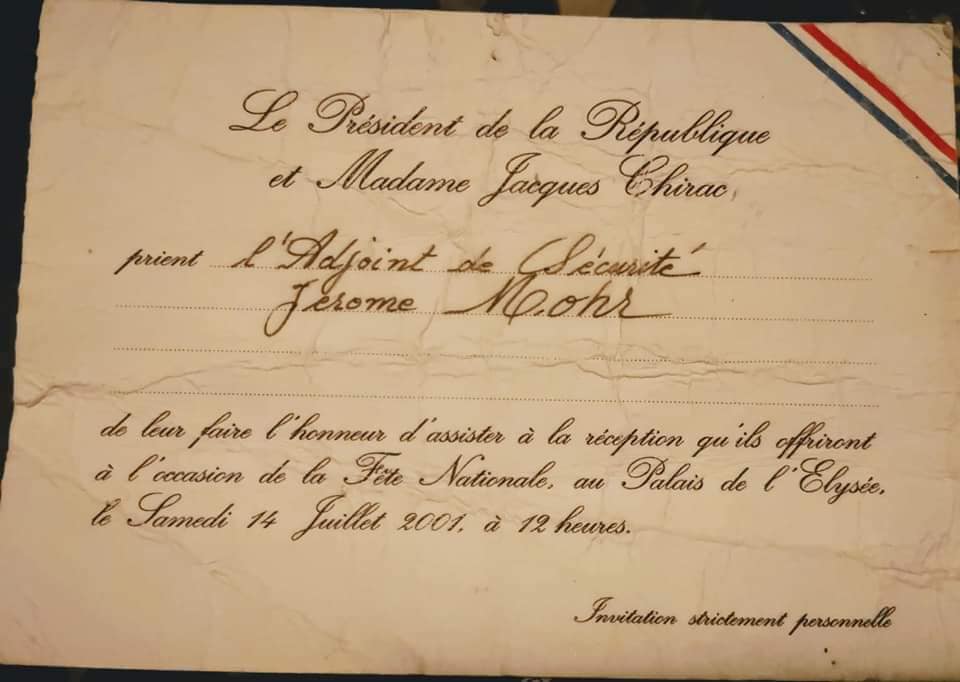 Le Président de la République
et Madame Jacques Chirac,
prient l'Adjoint de Sécurité
Jerome Mohr
de leur faire l'honneur d'assister à la réception qu'ils offriront
à l'occasion de la Fête Nationale, au Palais de l'Elysée,
le Samedi 14 Juillet 2001, à 12 heures.
Invitation strictement personnelle